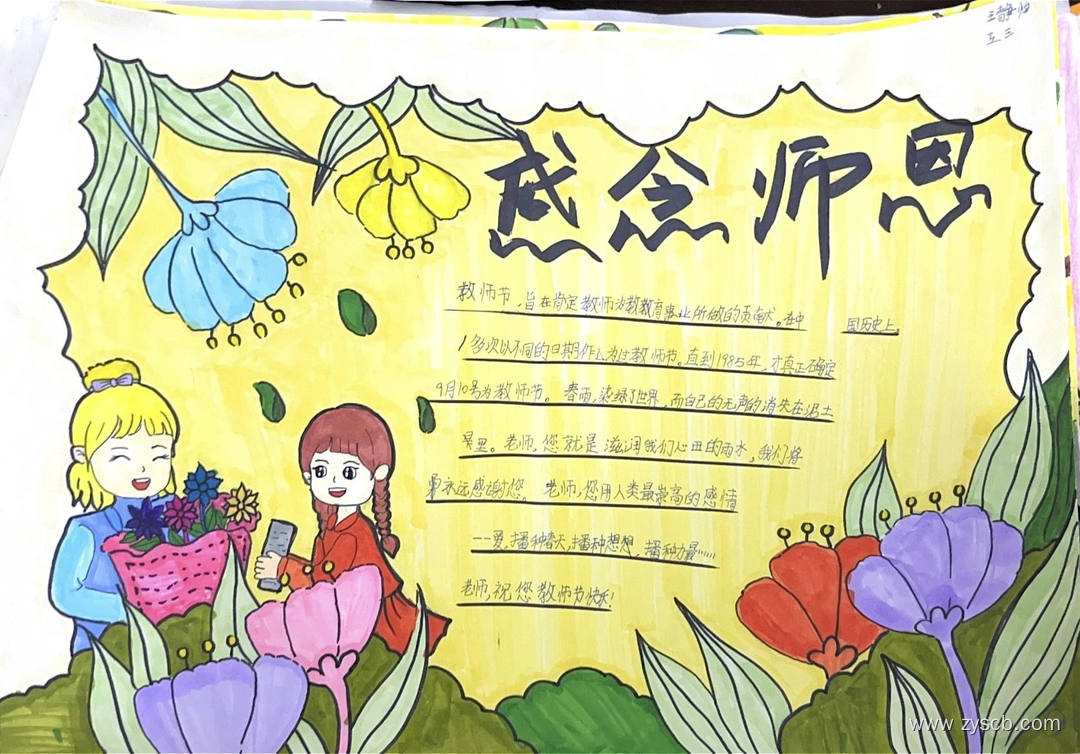 王静怡
五.三
感念师恩
教师节,旨在肯定教师为教教育事业所做的贡献。在中 国历史上,
多次以不同的日期作为过教师节。直到1985年,才真正确定
9月10号为教师节。 春雨,染绿了世界,而自己的无声的消失在泥土
里。老师,您就是滋润我们心田的雨水,我们将
永远感谢您。 老师,您用人类最崇高的感情
--爱,播种春天,播种想想,播种力量……
老师,祝您教师节快乐!
www.zyscb.com